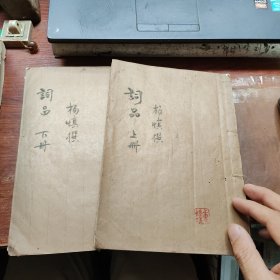 詞品 上冊
楊慎撰
詞品 下冊
楊慎撰